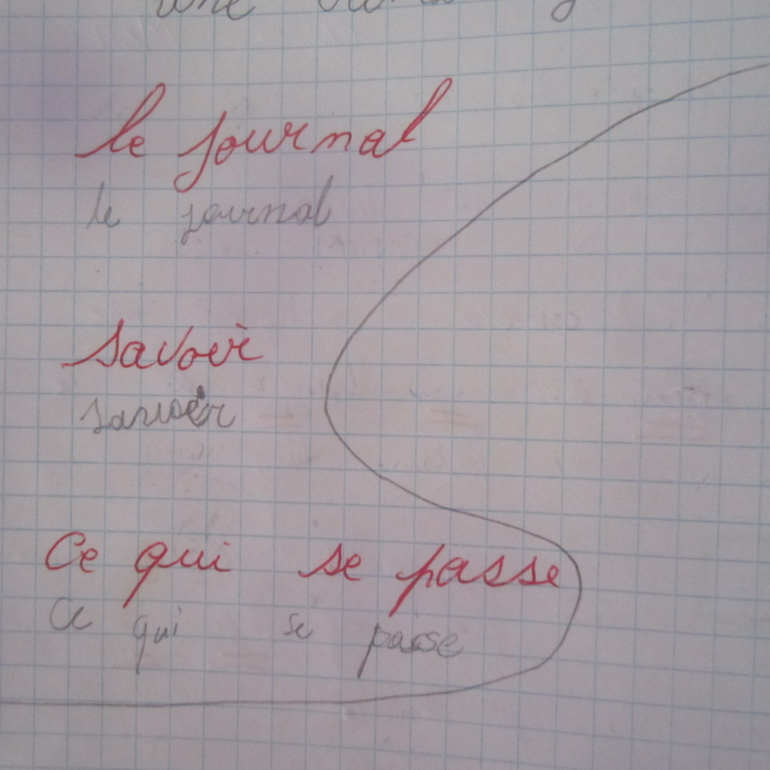 une
le journal
le journal
savoir
savoir
Ce qui se passe
Ce qui se passe